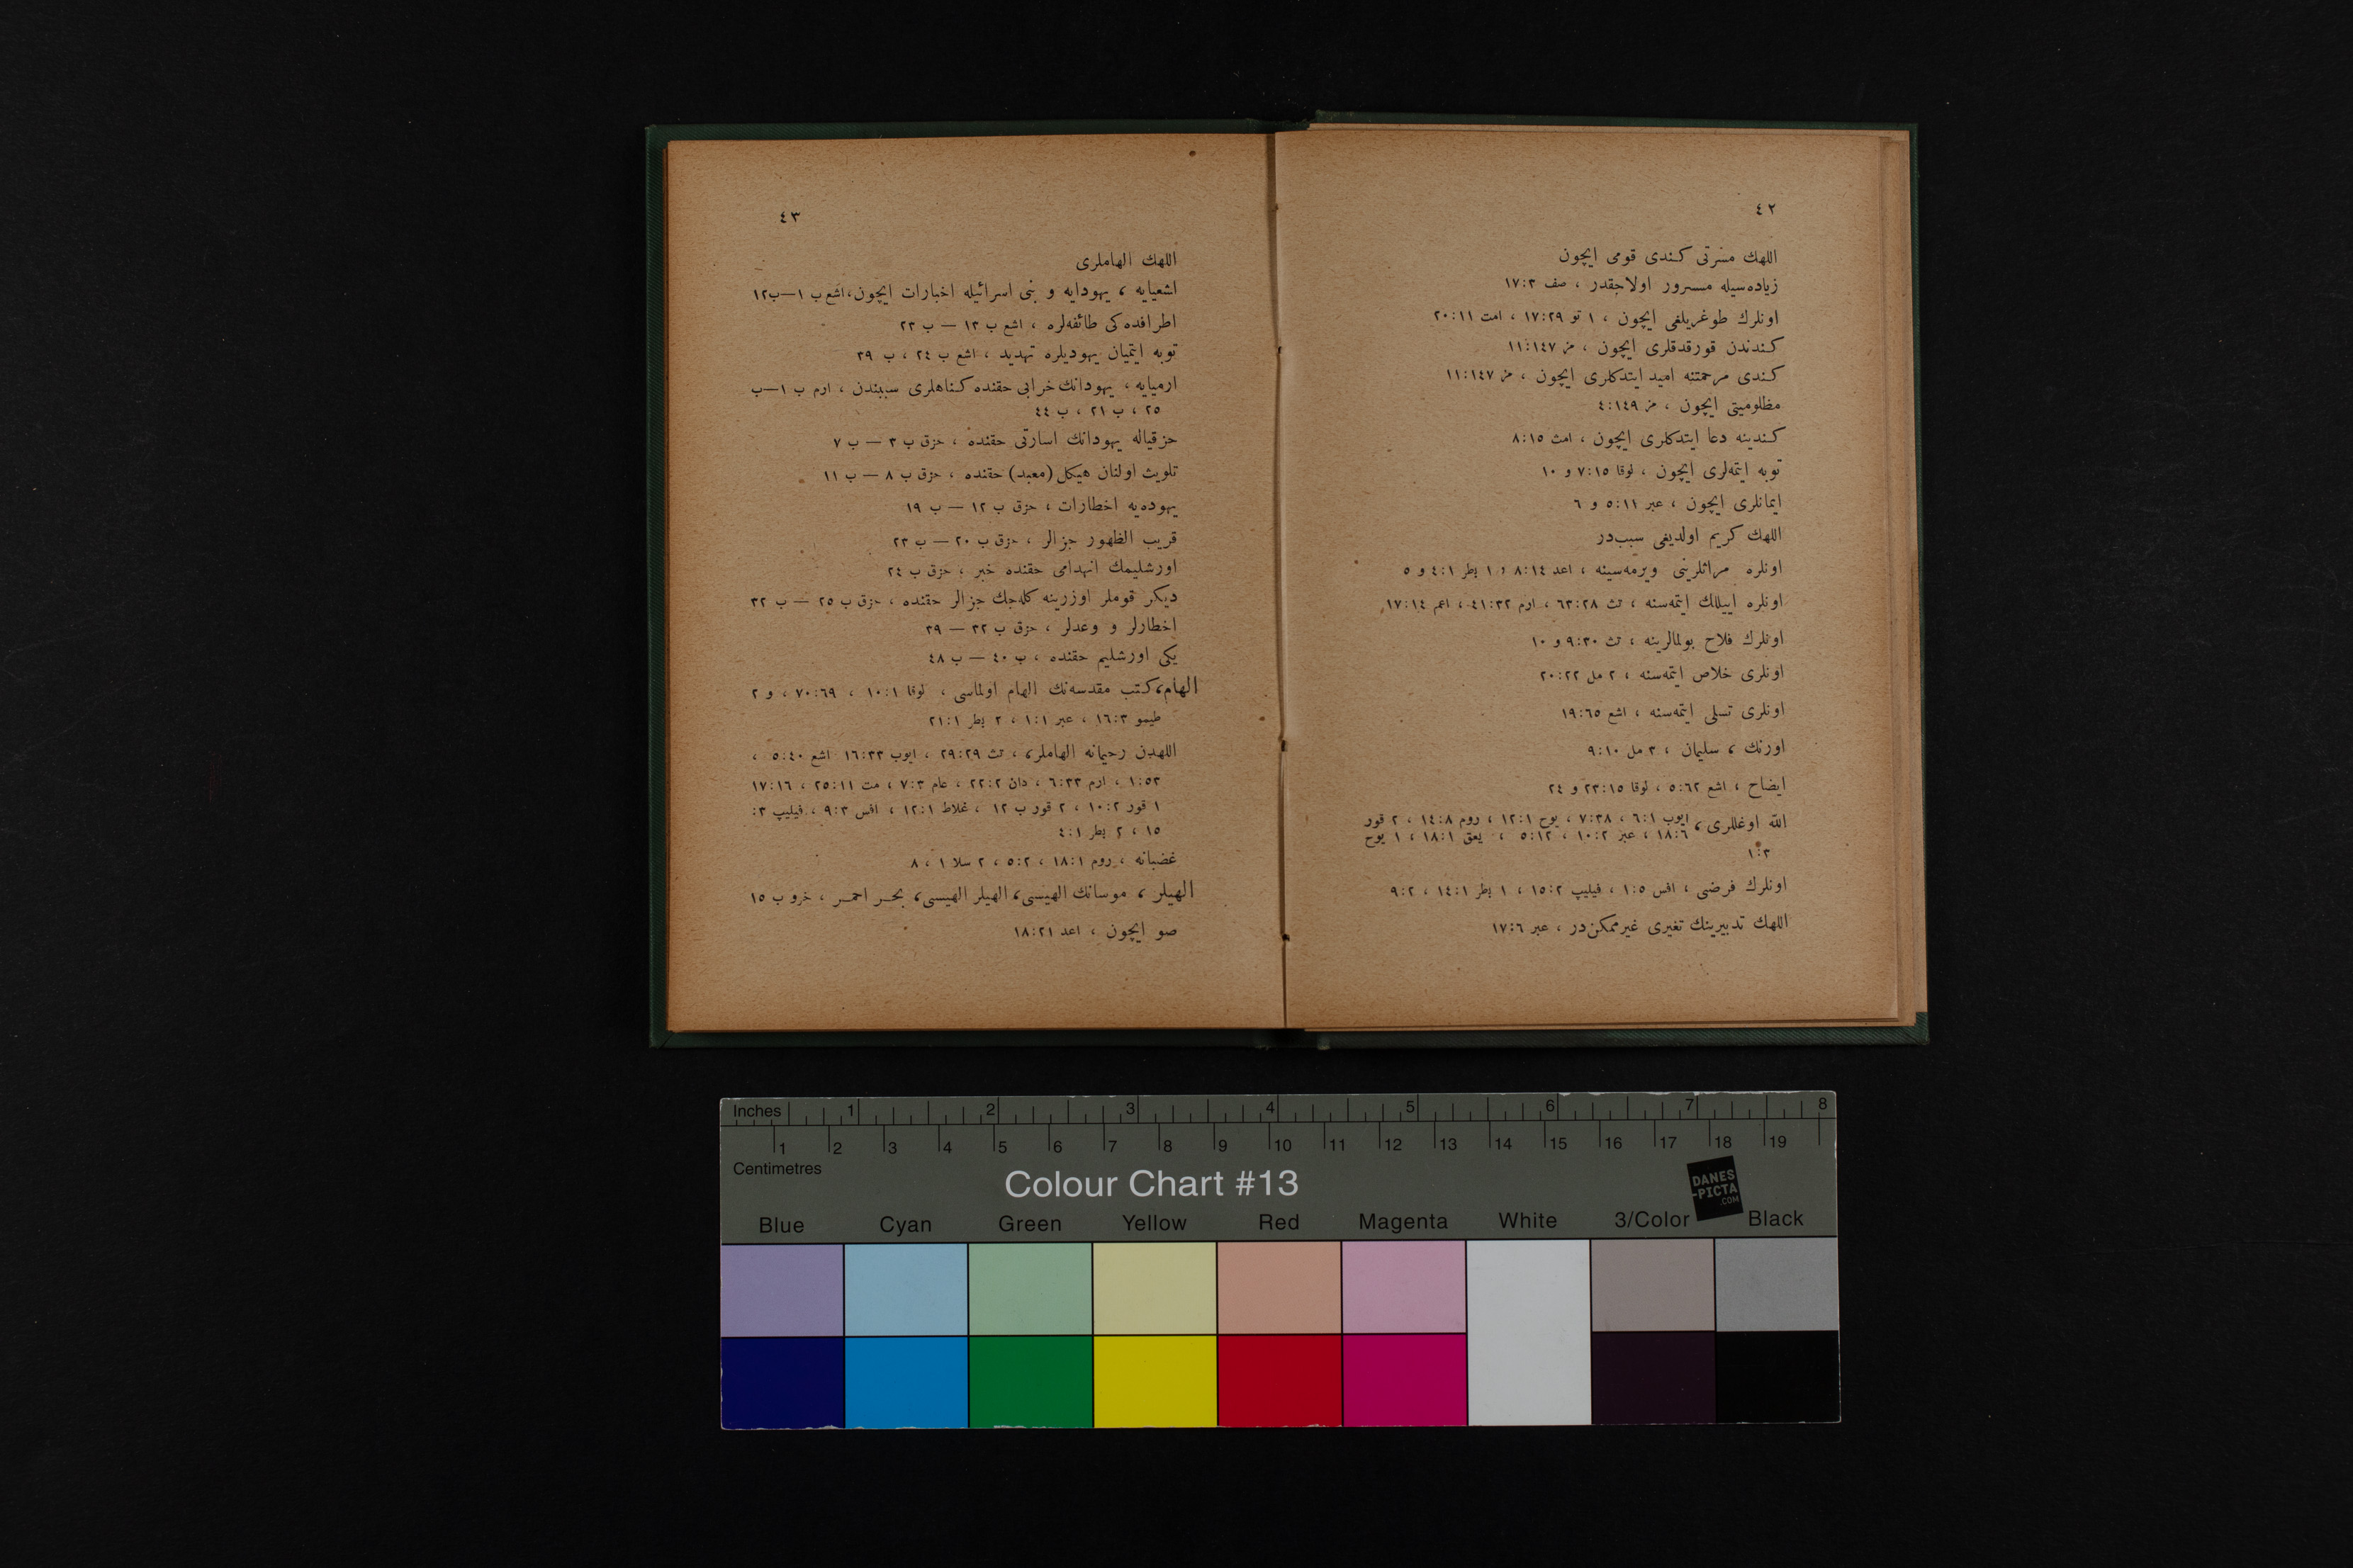 ٤٢
اللهك مسرتی كندی قومی ایچون
زیاده‌سیله مسرور اولاجقدر ، صف ١٧:٣
اونلرك طوغریلغی ایچون ، ١ تو ١٧:٢٩ ، امث ٢٠:١١
كندندن قورقدقلری ایچون ، مز ١١:١٤٧
كندی مرحمتنه امید ایتدكلری ایچون ، مز ١١:١٤٧
مظلومیتی ایچون ، مز ٤:١٤٩
كندینه دعا ایتدكلری ایچون ، امث ٨:١٥
توبه ایتمه‌لری ایچون ، لوقا ٧:١٥ و ١٠
ایمانلری ایچون ، عبر ٥:١١ و ٦
اللهك كریم اولدیغی سبب‌در
اونلره مراثلرینی ویرمه‌سینه ، اعد ٨:١٤ ، ١ پطر ٤:١ و ٥
اونلره اییللك ایتمه‌سنه ، تث ٦٣:٢٨ ، ارم ٤١:٣٢ ، اعم ١٧:١٤
اونلرك فلاح بولمالرینه ، تث ٩:٣٠ و ١٠
اونلری خلاص ایتمه‌سنه ، ٢ مل ٢٠:٢٢
اونلری تسلی ایتمه‌سنه ، اشع ١٩:٦٥
اورنك ، سلیمان ، ٣ مل ٩:١٠
ایضاح ، اشع ٥:٦٢ ، لوقا ٢٣:١٥ و ٢٤
الله اوغللری ، ایوب ٦:١ ، ٧:٣٨ ، یوح ١٢:١ ، روم ١٤:٨ ، ٢ قور
١٨:٦ ، عبر ١٠:٢ ، ٥:١٢ ، یعق ١٨:١ ، ١ یوح
١:٣
اونلرك فرضی ، افس ١:٥ ، فیلیپ ١٥:٢ ، ١ پطر ١٤:١ ، ٩:٢
اللهك تدبیرینك تغیری غیرممكن‌در ، عبر ١٧:٦
٤٣
اللهك الهاملری
اشعیایه ، یهودایه و بنی اسرائیله اخبارات ایچون ، اشع ب ١—ب١٢
اطرافده‌كی طائفه‌لره ، اشع ب ١٣ — ب ٢٣
توبه ایتمیان یهودیلره تهدید ، اشع ب ٢٤ ، ب ٣٩
ارمیایه ، یهودانك خرابی حقنده كناهلری سببندن ، ارم ب ١—ب
٢٥ ، ب ٢١ ، ب ٤٤
حزقیاله یهودانك اسارتی حقنده ، حزق ب ٣ — ب ٧
تلویث اولنان هیكل (معبد) حقنده ، حزق ب ٨ — ب ١١
یهوده‌یه اخطارات ، حزق ب ١٢ — ب ١٩
قریب الظهور جزالر ، حزق ب ٢٠ — ب ٢٣
اورشلیمك انهدامی حقنده خبر ، حزق ب ٢٤
دیكر قوملر اوزرینه كله‌جك جزالر حقنده ، حزق ب ٢٥ — ب ٣٢
اخطارلر و وعدلر ، حزق ب ٣٢ — ٣٩
یكی اورشلیم حقنده ، ب ٤٠ — ب ٤٨
الهام ، كتب مقدسه‌نك الهام اولماسی ، لوقا ١٠:١ ، ٧٠:٦٩ ، و ٢
طیمو ١٦:٣ ، عبر ١:١ ، ٢ پطر ٢١:١
اللهدن رحیمانه الهاملر ، تث ٢٩:٢٩ ، ایوب ١٦:٣٣ اشع ٥:٤٠ ،
١:٥٣ ، ارم ٦:٣٣ ، دان ٢٢:٢ ، عام ٧:٣ ، مت ٢٥:١١ ، ١٧:١٦
١ قور ١٠:٢ ، ٢ قور ب ١٢ ، غلاط ١٢:١ ، افس ٩:٣ ، فیلیپ ٣:
١٥ ، ٢ پطر ٤:١
غضبانه ، روم ١٨:١ ، ٥:٢ ، ٢ سلا ١ ، ٨
الهیلر ، موسانك الهیسی ، الهیلر الهیسی ، بحر احمر ، خرو ب ١٥
صو ایچون ، اعد ١٨:٢١
Inches 1 2 3 4 5 6 7 8
1 2 3 4 5 6 7 8 9 10 11 12 13 14 15 16 17 18 19
Centimetres
Colour Chart #13
DANES
-PICTA
.COM
Blue Cyan Green Yellow Red Magenta White 3/Color Black